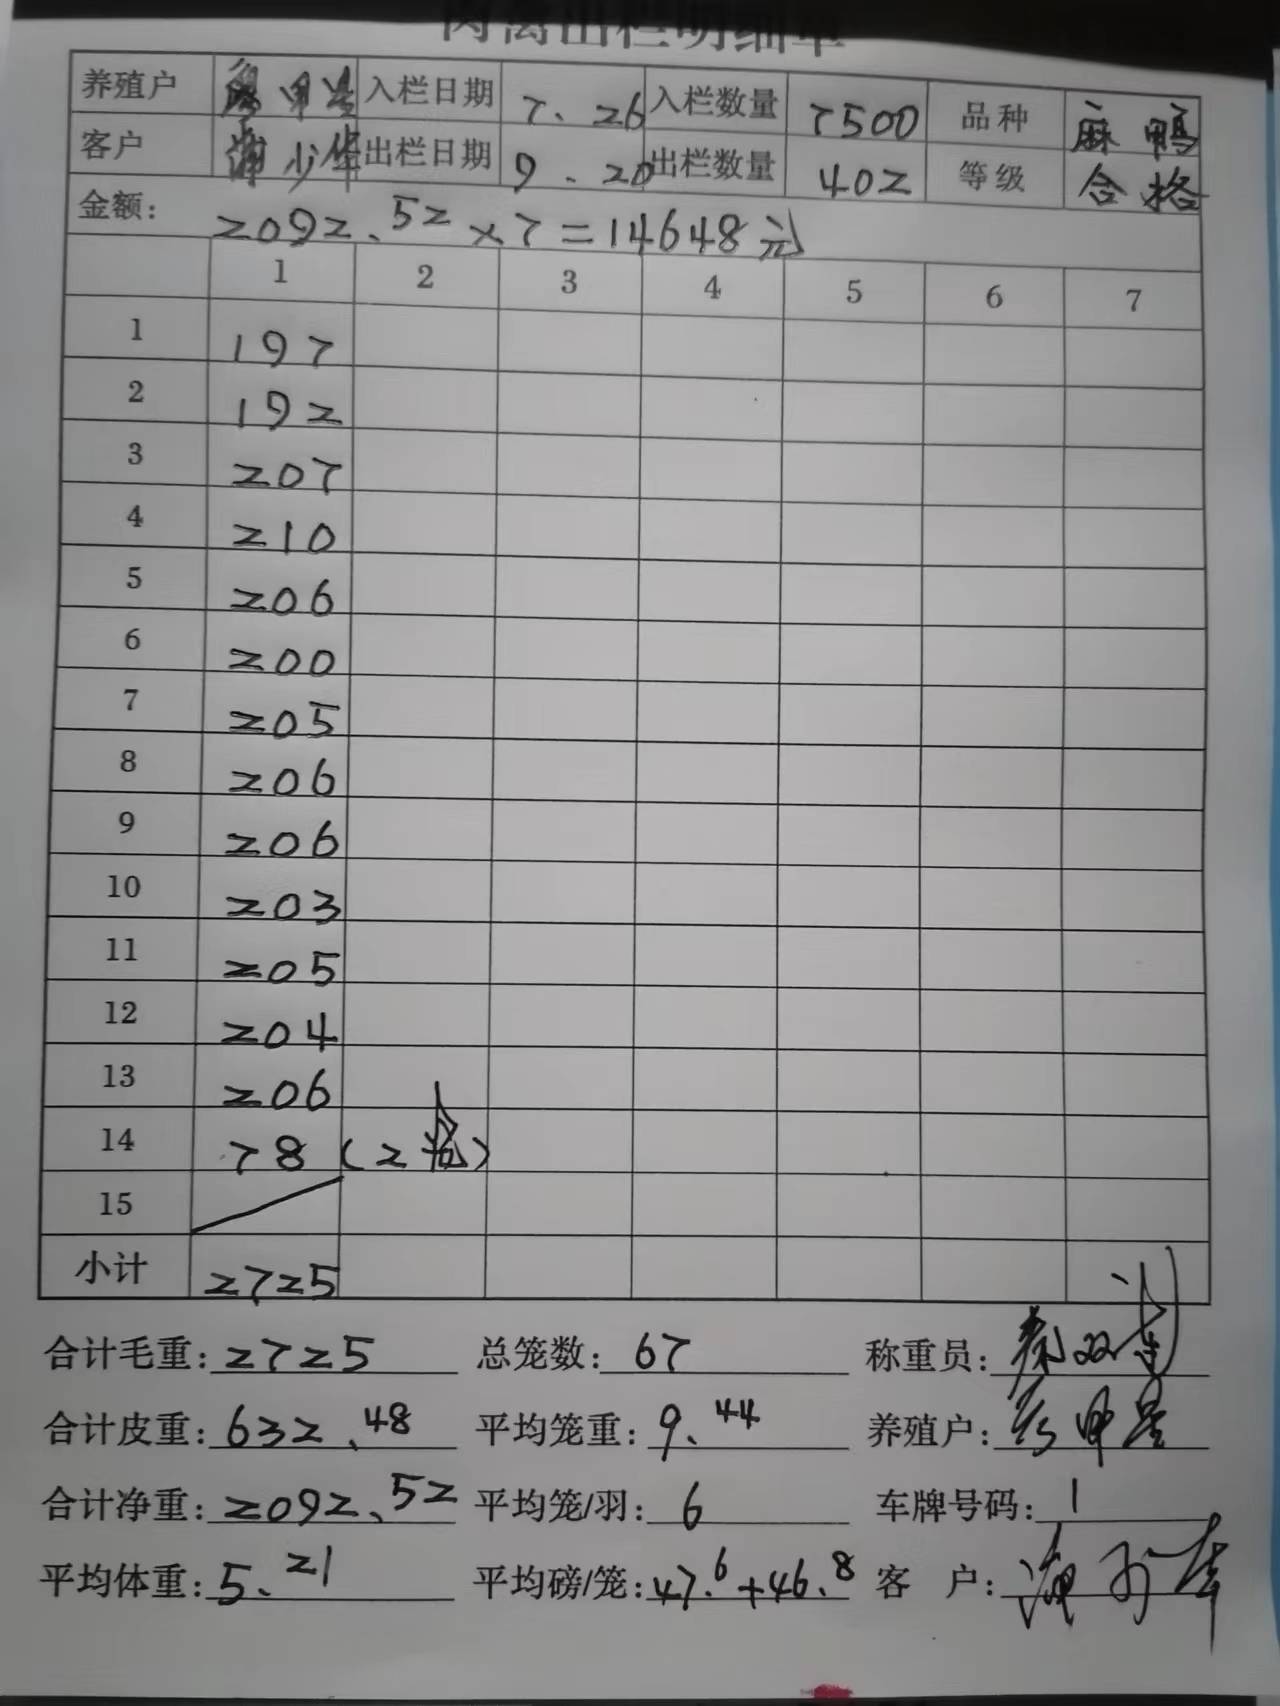 肉禽出栏明细单
养殖户 廖甲星 入栏日期 7.26 入栏数量 7500 品种 麻鸭
客户 蒲少华 出栏日期 9.20 出栏数量 402 等级 合格
金额: 2092.52×7=14648元
1 2 3 4 5 6 7
1 197
2 192
3 207
4 210
5 206
6 200
7 205
8 206
9 206
10 203
11 205
12 204
13 206
14 78 (2笼)
15
小计 2725
合计毛重: 2725 总笼数: 67 称重员:
合计皮重: 632.48 平均笼重: 9.44 养殖户:
合计净重: 2092.52 平均笼/羽: 6 车牌号码: 1
平均体重: 5.21 平均磅/笼: 47.6+46.8 客 户: